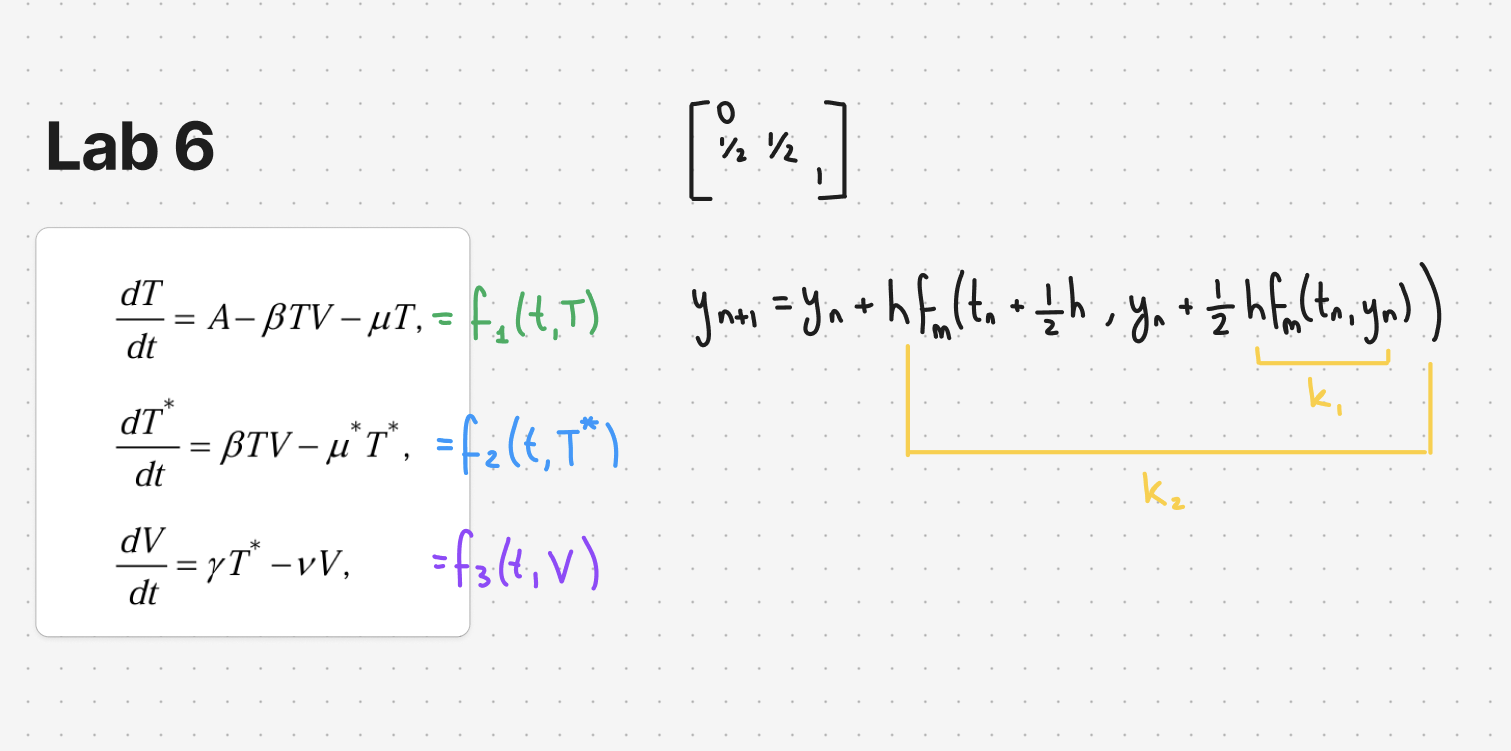 Lab 6
[0
½ ½
1]
dT/dt = A − βTV − μT, = f₁(t,T)
dT*/dt = βTV − μ*T*, = f₂(t,T*)
dV/dt = γT* − νV, = f₃(t,V)
yₙ₊₁ = yₙ + hfₘ(tₙ + ½h, yₙ + ½hfₘ(tₙ,yₙ))
k₁
k₂